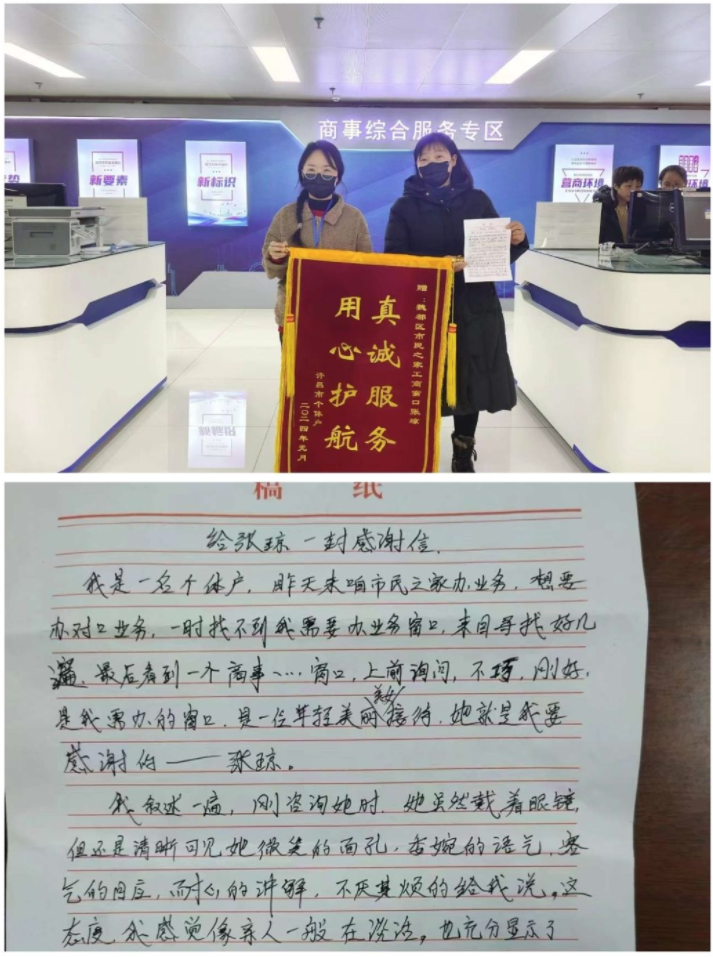 商事综合服务专区
新要素
新标识
营商环境
赠：魏都区市民之家工商窗口张琼
真诚服务
用心护航
许昌市个体户
二〇二四年元月
稿 纸
给张琼一封感谢信.
我是一名个体户，昨天来咱市民之家办业务，想要
办对口业务，一时找不到我需要办业务窗口，来回寻找好几
遍，最后看到一个商事……窗口，上前询问，不巧，刚好
是我需办的窗口，是一位年轻美丽美女接待，她就是我要
感谢的——张琼。
我叙述一遍，刚咨询她时，她虽然戴着眼镜，
但还是清晰可见她微笑的面孔，委婉的语气，客
气的回应，而耐心的讲解，不厌其烦的给我说。这
态度，我感觉像亲人一般在谈话，也充分显示了